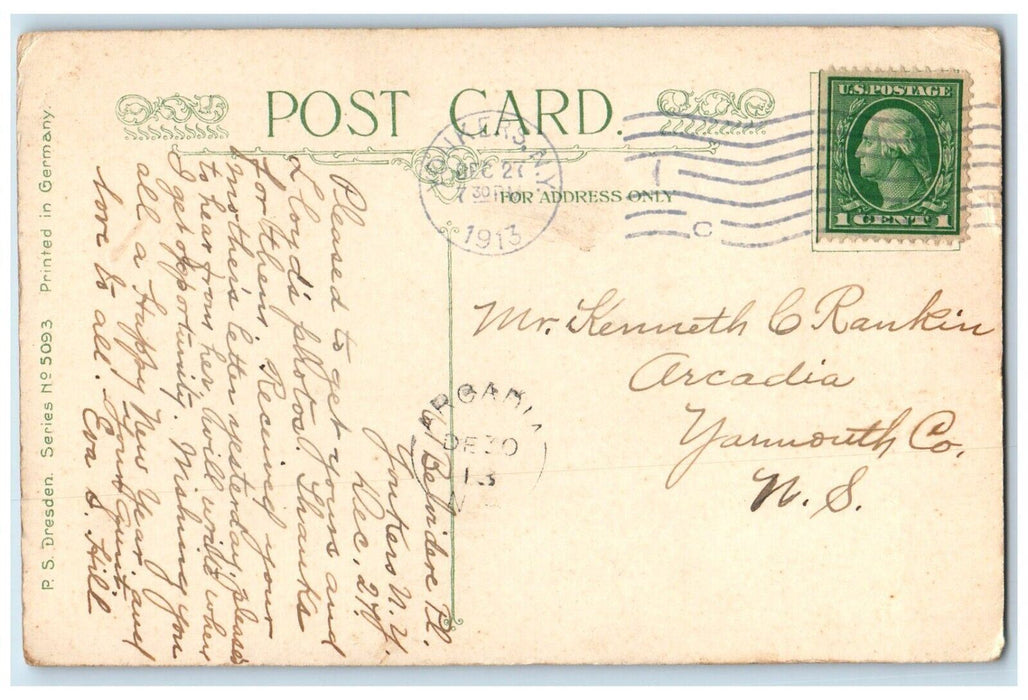 POST CARD.
FOR ADDRESS ONLY
YONKERS, N.Y.
DEC 27
7 30 PM
1913
C
U.S. POSTAGE
1 CENT 1
Mr. Kenneth C Rankin
Arcadia
Yarmouth Co.
N. S.
ARCADIA
DE 30
13
N S
Belvidere Pl.
Yonkers N. Y.
Dec. 27th
Please to get yours and
Lloyd's photos. Thanks
for them. Received your
mother's letter yesterday, please
to hear from her, will write when
I get opportunity. Wishing you
all a Happy New Year, and
love to all. Your Aunt,
Eva S. Hill
P. S. Dresden. Series No 5093 Printed in Germany.